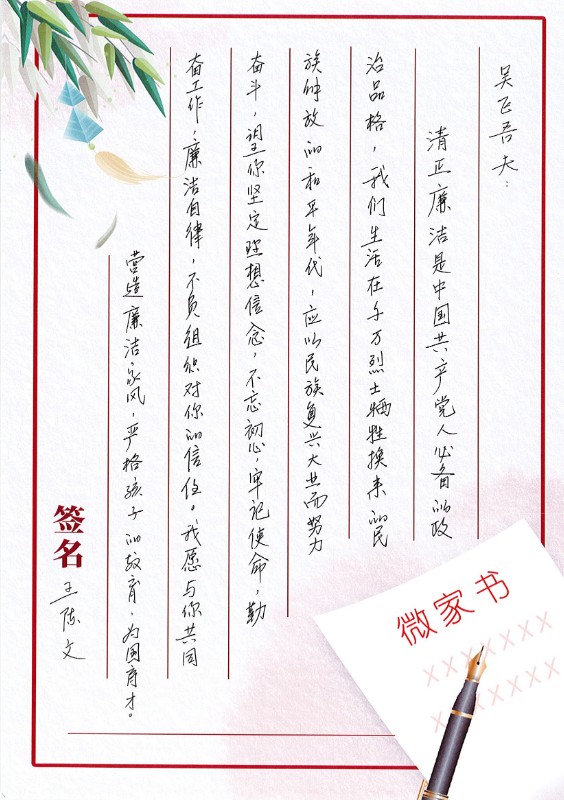 吴飞吾夫：
清正廉洁是中国共产党人必备的政
治品格，我们生活在千万烈士牺牲换来的民
族解放的和平年代，应以民族复兴大业而努力
奋斗，望你坚定理想信念，不忘初心，牢记使命，勤
奋工作，廉洁自律，不负组织对你的信任。我愿与你共同
营造廉洁家风，严格孩子的教育，为国育才。
签名
王陈文
微家书
XXXXXXX
XXXXXXX